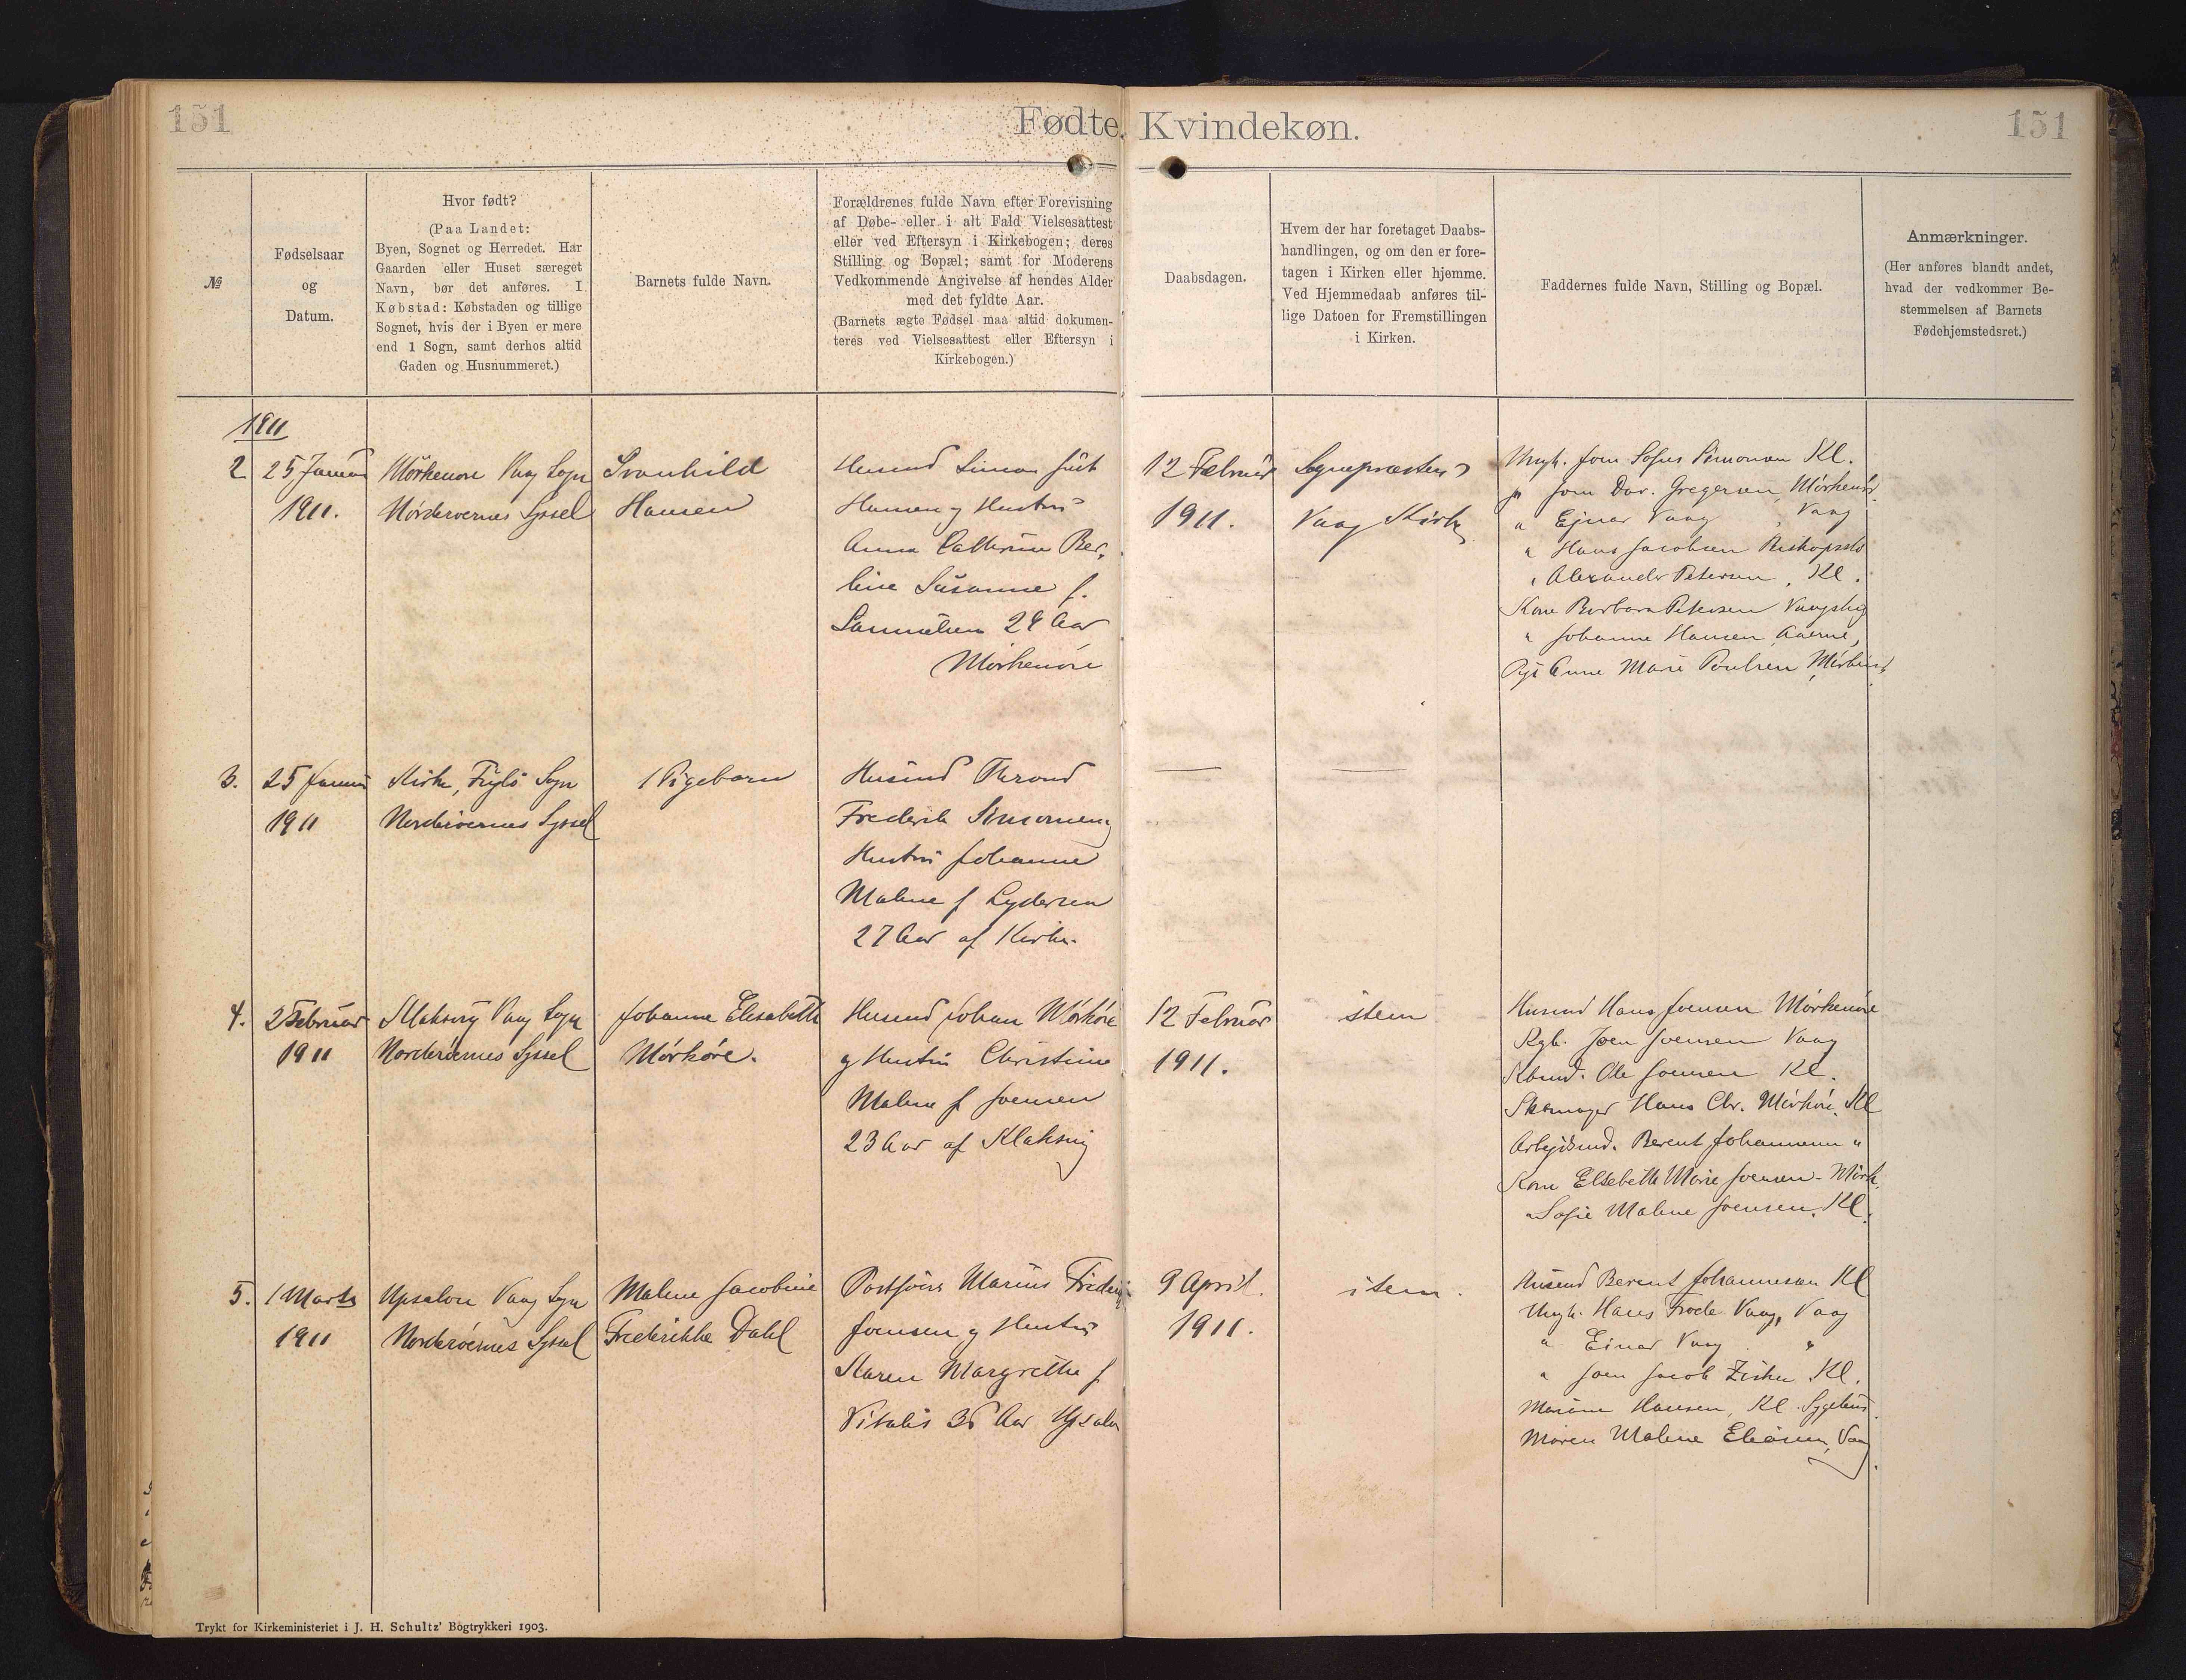 151
Fødte, Kvindekøn.
151
№
Fødselsaar
og
Datum.
Hvor født?
(Paa Landet:
Byen, Sognet og Herredet. Har
Gaarden eller Huset særeget
Navn, bør det anføres. I
Købstad: Købstaden og tillige
Sognet, hvis der i Byen er mere
end 1 Sogn, samt derhos altid
Gaden og Husnummeret.)
Barnets fulde Navn.
Forældrenes fulde Navn efter Forevisning
af Døbe- eller i alt Fald Vielsesattest
eller ved Eftersyn i Kirkebogen; deres
Stilling og Bopæl; samt for Moderens
Vedkommende Angivelse af hendes Alder
med det fyldte Aar.
(Barnets ægte Fødsel maa altid dokumen-
teres ved Vielsesattest eller Eftersyn i
Kirkebogen.)
Daabsdagen.
Hvem der har foretaget Daabs-
handlingen, og om den er fore-
tagen i Kirken eller hjemme.
Ved Hjemmedaab anføres til-
lige Datoen for Fremstillingen
i Kirken.
Faddernes fulde Navn, Stilling og Bopæl.
Anmærkninger.
(Her anføres blandt andet,
hvad der vedkommer Be-
stemmelsen af Barnets
Fødehjemstedsret.)
1911
2
25 Januar
1911.
Mörkenöre Vaag Sogn
Norderöernes Syssel
Svanhild
Hansen
Husmd Simon
Hansen og Hustru
Anna Cathrine Ber-
line Susanne f.
Samuelsen 24 Aar
Mörkenöre
12 Februar
1911.
Sognepræsten i
Vaag Kirke
Ungk. Joen Sofus Simonsen Kl.
" Joen Dav. Gregersen, Mörkenör.
" Ejnar Vaag, Vaag
" Hans Jacobsen Biskopsstö
" Alexander Petersen, Kl.
Kone Barbara Petersen Vaagsbyg
" Johanne Hansen Aaerne,
Pige Anne Marie Poulsen, Mörkenör
3.
25 Januar
1911
Kirke, Fuglö Sogn
Norderöernes Syssel
1 Pigebarn
Husmd Thrond
Frederik Simonsen og
Hustru Johanne
Malene f Lydersen
27 Aar af Kirke.
4.
2 Februar
1911
Klaksvig Vaag Sogn
Norderöernes Syssel
Johanne Elisabeth
Mörköre.
Husmd Johan Mörköre
og Hustru Christine
Malene f Joensen
23 Aar af Klaksvig
12 Februar
1911.
item
Husmd Hans Joensen Mörkenöre
Kgb. Joen Joensen Vaag
Kbmd. Ole Joensen Kl.
Skomager Hans Chr. Mörköre, Kl
Arbejdsmd. Berent Johannesen "
Kone Elsebeth Marie Joensen - Mörk.
" Sofie Malene Joensen, Kl.
5.
1 Marts
1911
Upsalen Vaag Sogn
Norderöernes Syssel
Malene Jacobine
Frederikke Dahl
Postfører Marius Frederik
Joensen og Hustru
Karen Margrethe f
Vitalis 36 Aar Upsalen
9 April.
1911.
item.
Husmd Berent Johannesen Kl
Ungk. Hans Frode Vaag, Vaag
" Einar Vaag "
" Joen Jacob Ziska Kl.
Hansen, Kl. Sygehus.
Maren Malene Eliasen, Vaag.
Trykt for Kirkeministeriet i J. H. Schultz' Bogtrykkeri 1903.